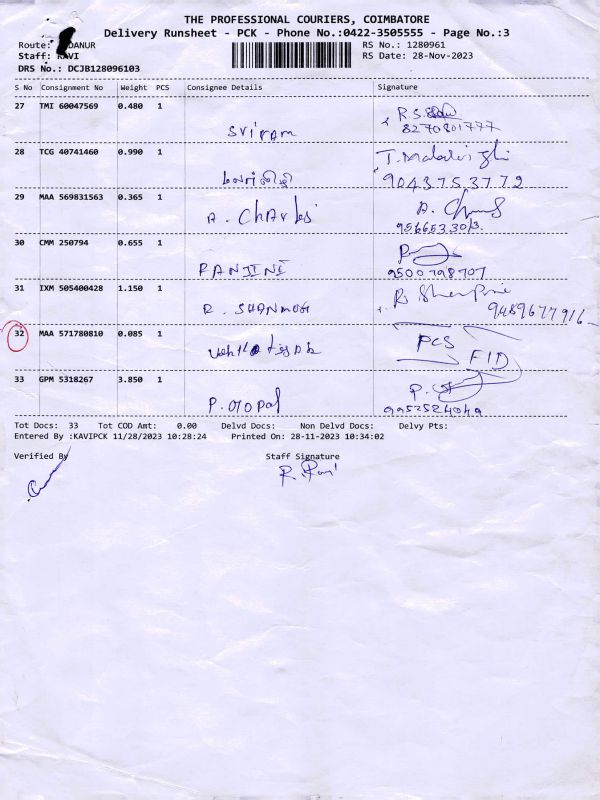 THE PROFESSIONAL COURIERS, COIMBATORE
Delivery Runsheet - PCK - Phone No.:0422-3505555 - Page No.:3
Route: DANUR RS No.: 1280961
Staff: KAVI RS Date: 28-Nov-2023
DRS No.: DCJB128096103
S No Consignment No Weight PCS Consignee Details Signature
27 TMI 60047569 0.480 1
Sriram R.S. 8270801777
28 TCG 40741460 0.990 1
9043753772
29 MAA 569831563 0.365 1
A. Charles A.
30 CMM 250794 0.655 1
RANJINI 9500798707
31 IXM 505400428 1.150 1
R. SHANMUG R. 9489677916
32 MAA 571780810 0.085 1
PCS
FID
33 GPM 5318267 3.850 1
P. P.
9952524049
Tot Docs: 33 Tot COD Amt: 0.00 Delvd Docs: Non Delvd Docs: Delvy Pts:
Entered By :KAVIPCK 11/28/2023 10:28:24 Printed On: 28-11-2023 10:34:02
Verified By Staff Signature